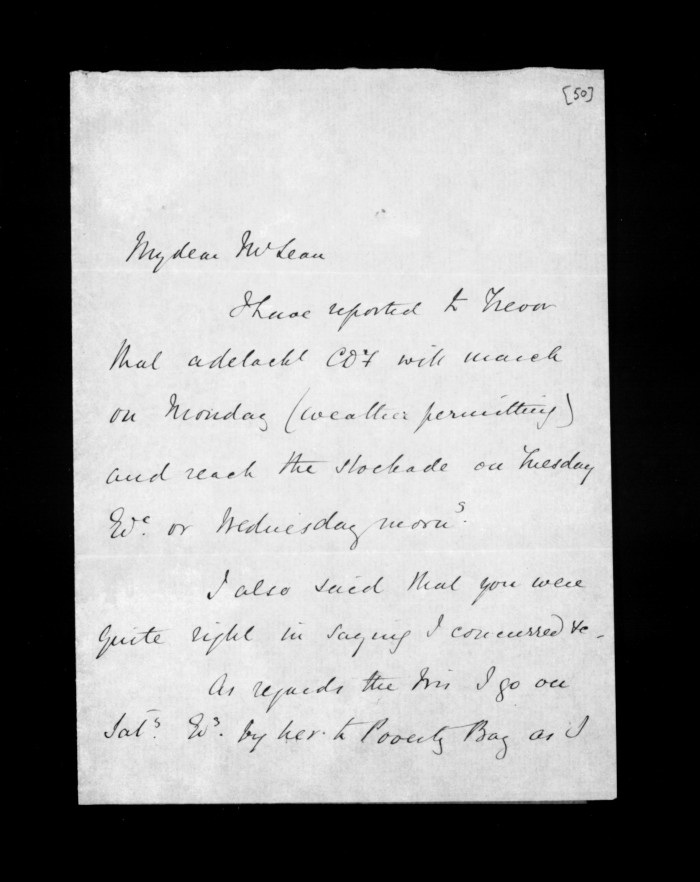 [50]
My dear McLean
I have reported to Trevor
that a detacht CDF will march
on Monday (weather permitting)
and reach the stockade on Tuesday
Evg. or Wednesday morng.
I also said that you were
quite right in saying I concurred &c.
As regards the Iris I go on
Saty. Evg. by her to Poverty Bay as I